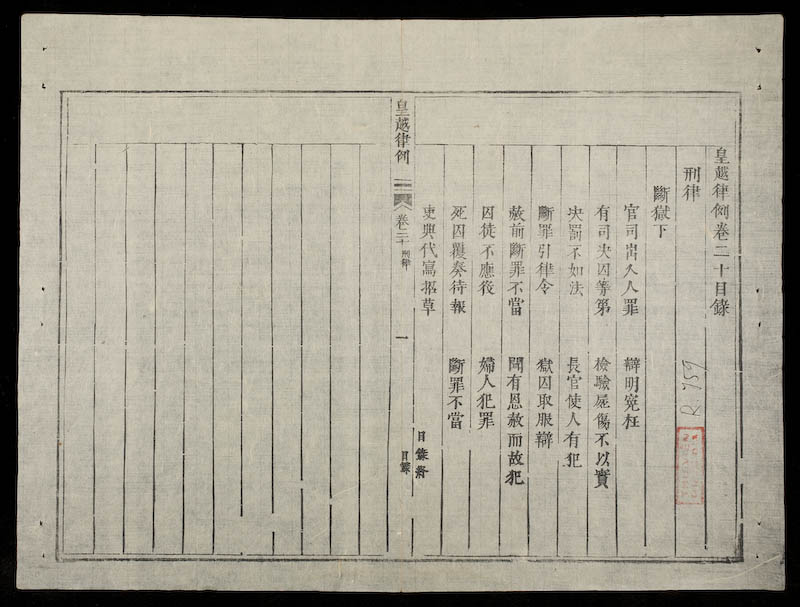 皇越律例卷二十目錄
刑律
斷獄下
官司出入人罪 辯明冤枉
有司決囚等第 檢驗屍傷不以實
决罰不如法 長官使人有犯
斷罪引律令 獄囚取服辯
赦前斷罪不當 聞有恩赦而故犯
囚徒不應役 婦人犯罪
死囚覆奏待報 斷罪不當
吏典代寫招草
目錄終
皇越律例
卷二十 刑律
一
目錄
R 759